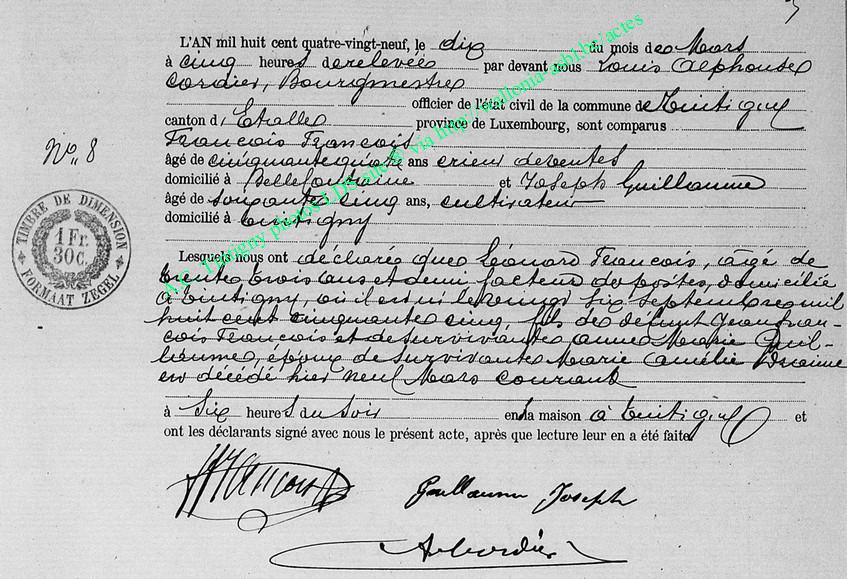 L'AN mil huit cent quatre-vingt-neuf, le dix du mois de Mars
à cinq heures de relevée par devant nous Louis Alphonse
Cordier, Bourgmestre
officier de l'état civil de la commune de Tintigny
canton d'Etalle province de Luxembourg, sont comparus
François François
âgé de cinquante quatre ans crieur de ventes
domicilié à Bellefontaine et Joseph Guillaume
âgé de soixante cinq ans, cultivateur
domicilié à Tintigny
Lesquels nous ont déclaré que Léonard François, âgé de
trente trois ans et demi facteur de postes, domicilié
à Tintigny, où il est né le vingt six septembre mil
huit cent cinquante cinq, fils de défunt Jean Fran-
çois François et de survivante Anne Marie Guil-
laume, époux de survivante Marie Amélie
est décédé hier neuf Mars courant
à six heures du soir en sa maison à Tintigny et
ont les déclarants signé avec nous le présent acte, après que lecture leur en a été faite
No. 8
TIMBRE DE DIMENSION
1 Fr.
30 C.
FORMAAT ZEGEL
A.C. Tintigny photos LDS via http://wallonia-asbl.be/actes
François
Guillaume Joseph
A Cordier